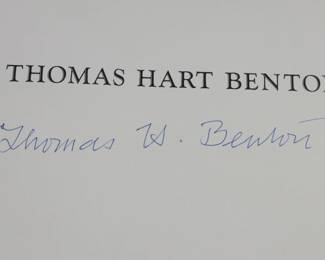 THOMAS HART BENTON
Thomas H. Benton